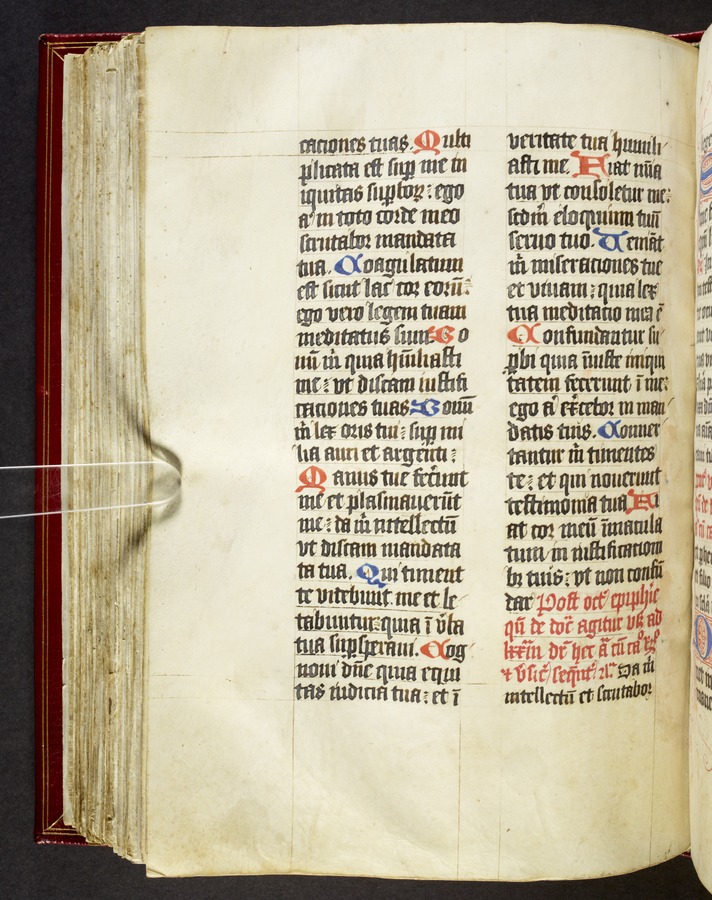 caciones tuas. Multi
plicata est sup me in
iquitas supbor᷒: ego
a͛ in toto corde meo
scrutabor mandata
tua. Coagulatum
est sicut lac cor eorū:
ego vero legem tuam
meditatus sum: Bo
nū m͛ quia hūiliasti
me: vt discam iustifi
caciones tuas Bonū
m͛ lex oris tui: sup mi
lia auri et argenti:
Manus tue fecerūt
me et plasmauerūt
me: da m͛ intellectū
vt discam mandata
ta tua. Qui timent
te videbunt me et le
tabuntur: quia ī v͛ba
tua supsperaui. Cog
noui dn̄e quia equi
tas iudicia tua: et ī
veritate tua humili
asti me. Fiat mīa
tua vt consoletur me:
scdm̄ eloquium tuū
seruo tuo. Veniāt
m͛ miseraciones tue
et viuam: quia lex
tua meditatio mea ē
Confundantur su
pbi quia iniuste iniqui
tatem fecerunt ī me:
ego a͛ exͨebor in man
datis tuis. Conuer
tantur m͛ timentes
te: et qui nouerunt
testimonia tua Fi
at cor meū īmacula
tum in iustificacioni
bʒ tuis: vt non confū
dar Post oct͛ epiphīe
qn̄ de
agitur vsqʒ ad
lxxm̄ dr̄ hec a͛ cū
et sequēt͛ Da m͛
intellectū et scrutabor